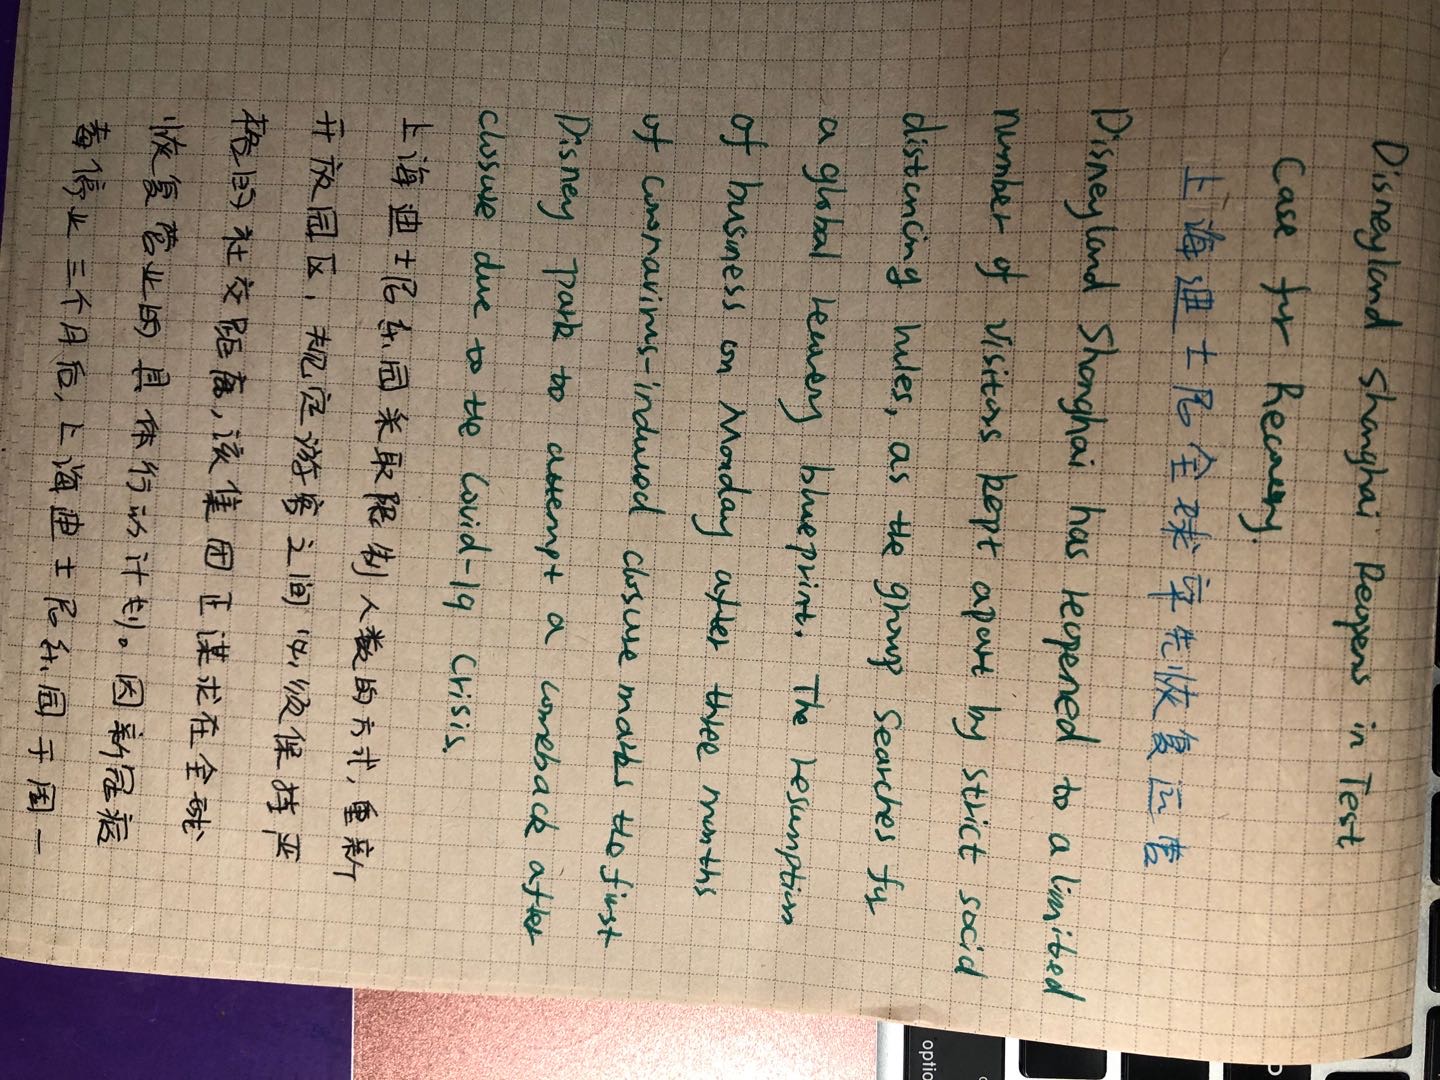 Disneyland Shanghai Reopens in Test
Case for Recovery.
上海迪士尼全球率先恢复运营
Disneyland Shanghai has reopened to a limited
number of visitors kept apart by strict social
distancing rules, as the group searches for
a global recovery blueprint. The resumption
of business on Monday after three months
of coronavirus-induced closure marks the first
Disney park to attempt a comeback after
closure due to the Covid-19 crisis.
上海迪士尼乐园采取限制人数的方式，重新
开放园区，规定游客之间必须保持严
格的社交距离，该集团正谋求在全球
恢复营业的具体行动计划。因新冠病
毒停业三个月后，上海迪士尼乐园于周一
option